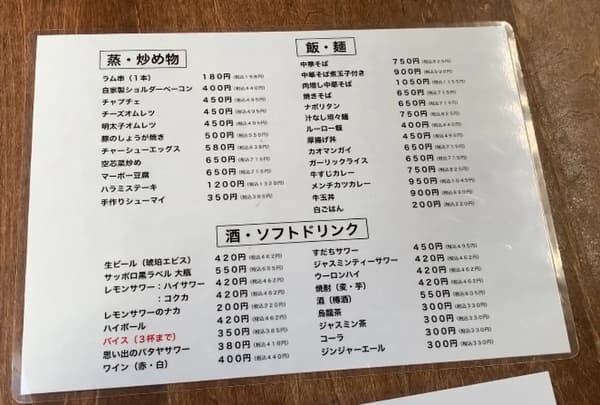 蒸・炒め物
ラム串（1本） 180円(税込198円)
自家製ショルダーベーコン 400円(税込440円)
チャプチェ 450円(税込495円)
チーズオムレツ 450円(税込495円)
明太子オムレツ 450円(税込495円)
豚のしょうが焼き 500円(税込550円)
チャーシューエッグス 580円(税込638円)
空芯菜炒め 650円(税込715円)
マーボー豆腐 650円(税込715円)
ハラミステーキ 1200円(税込1320円)
手作りシューマイ 350円(税込385円)
飯・麺
中華そば 750円(税込825円)
中華そば煮玉子付き 900円(税込990円)
肉増し中華そば 1050円(税込1155円)
焼きそば 650円(税込715円)
ナポリタン 650円(税込715円)
汁なし坦々麺 750円(税込825円)
ルーロー飯 400円(税込440円)
厚揚げ丼 450円(税込495円)
カオマンガイ 650円(税込715円)
ガーリックライス 650円(税込715円)
牛すじカレー 750円(税込825円)
メンチカツカレー 950円(税込1045円)
牛玉丼 900円(税込990円)
白ごはん 200円(税込220円)
酒・ソフトドリンク
生ビール（琥珀エビス） 420円(税込462円)
サッポロ黒ラベル 大瓶 550円(税込605円)
レモンサワー：ハイサワー 420円(税込462円)
：コクカ 420円(税込462円)
レモンサワーのナカ 200円(税込220円)
ハイボール 420円(税込462円)
バイス（3杯まで） 350円(税込385円)
思い出のパタヤサワー 380円(税込418円)
ワイン（赤・白） 400円(税込440円)
すだちサワー 450円(税込495円)
ジャスミンティーサワー 420円(税込462円)
ウーロンハイ 420円(税込462円)
焼酎（麦・芋） 420円(税込462円)
酒（樽酒） 550円(税込605円)
烏龍茶 300円(税込330円)
ジャスミン茶 300円(税込330円)
コーラ 300円(税込330円)
ジンジャーエール 300円(税込330円)